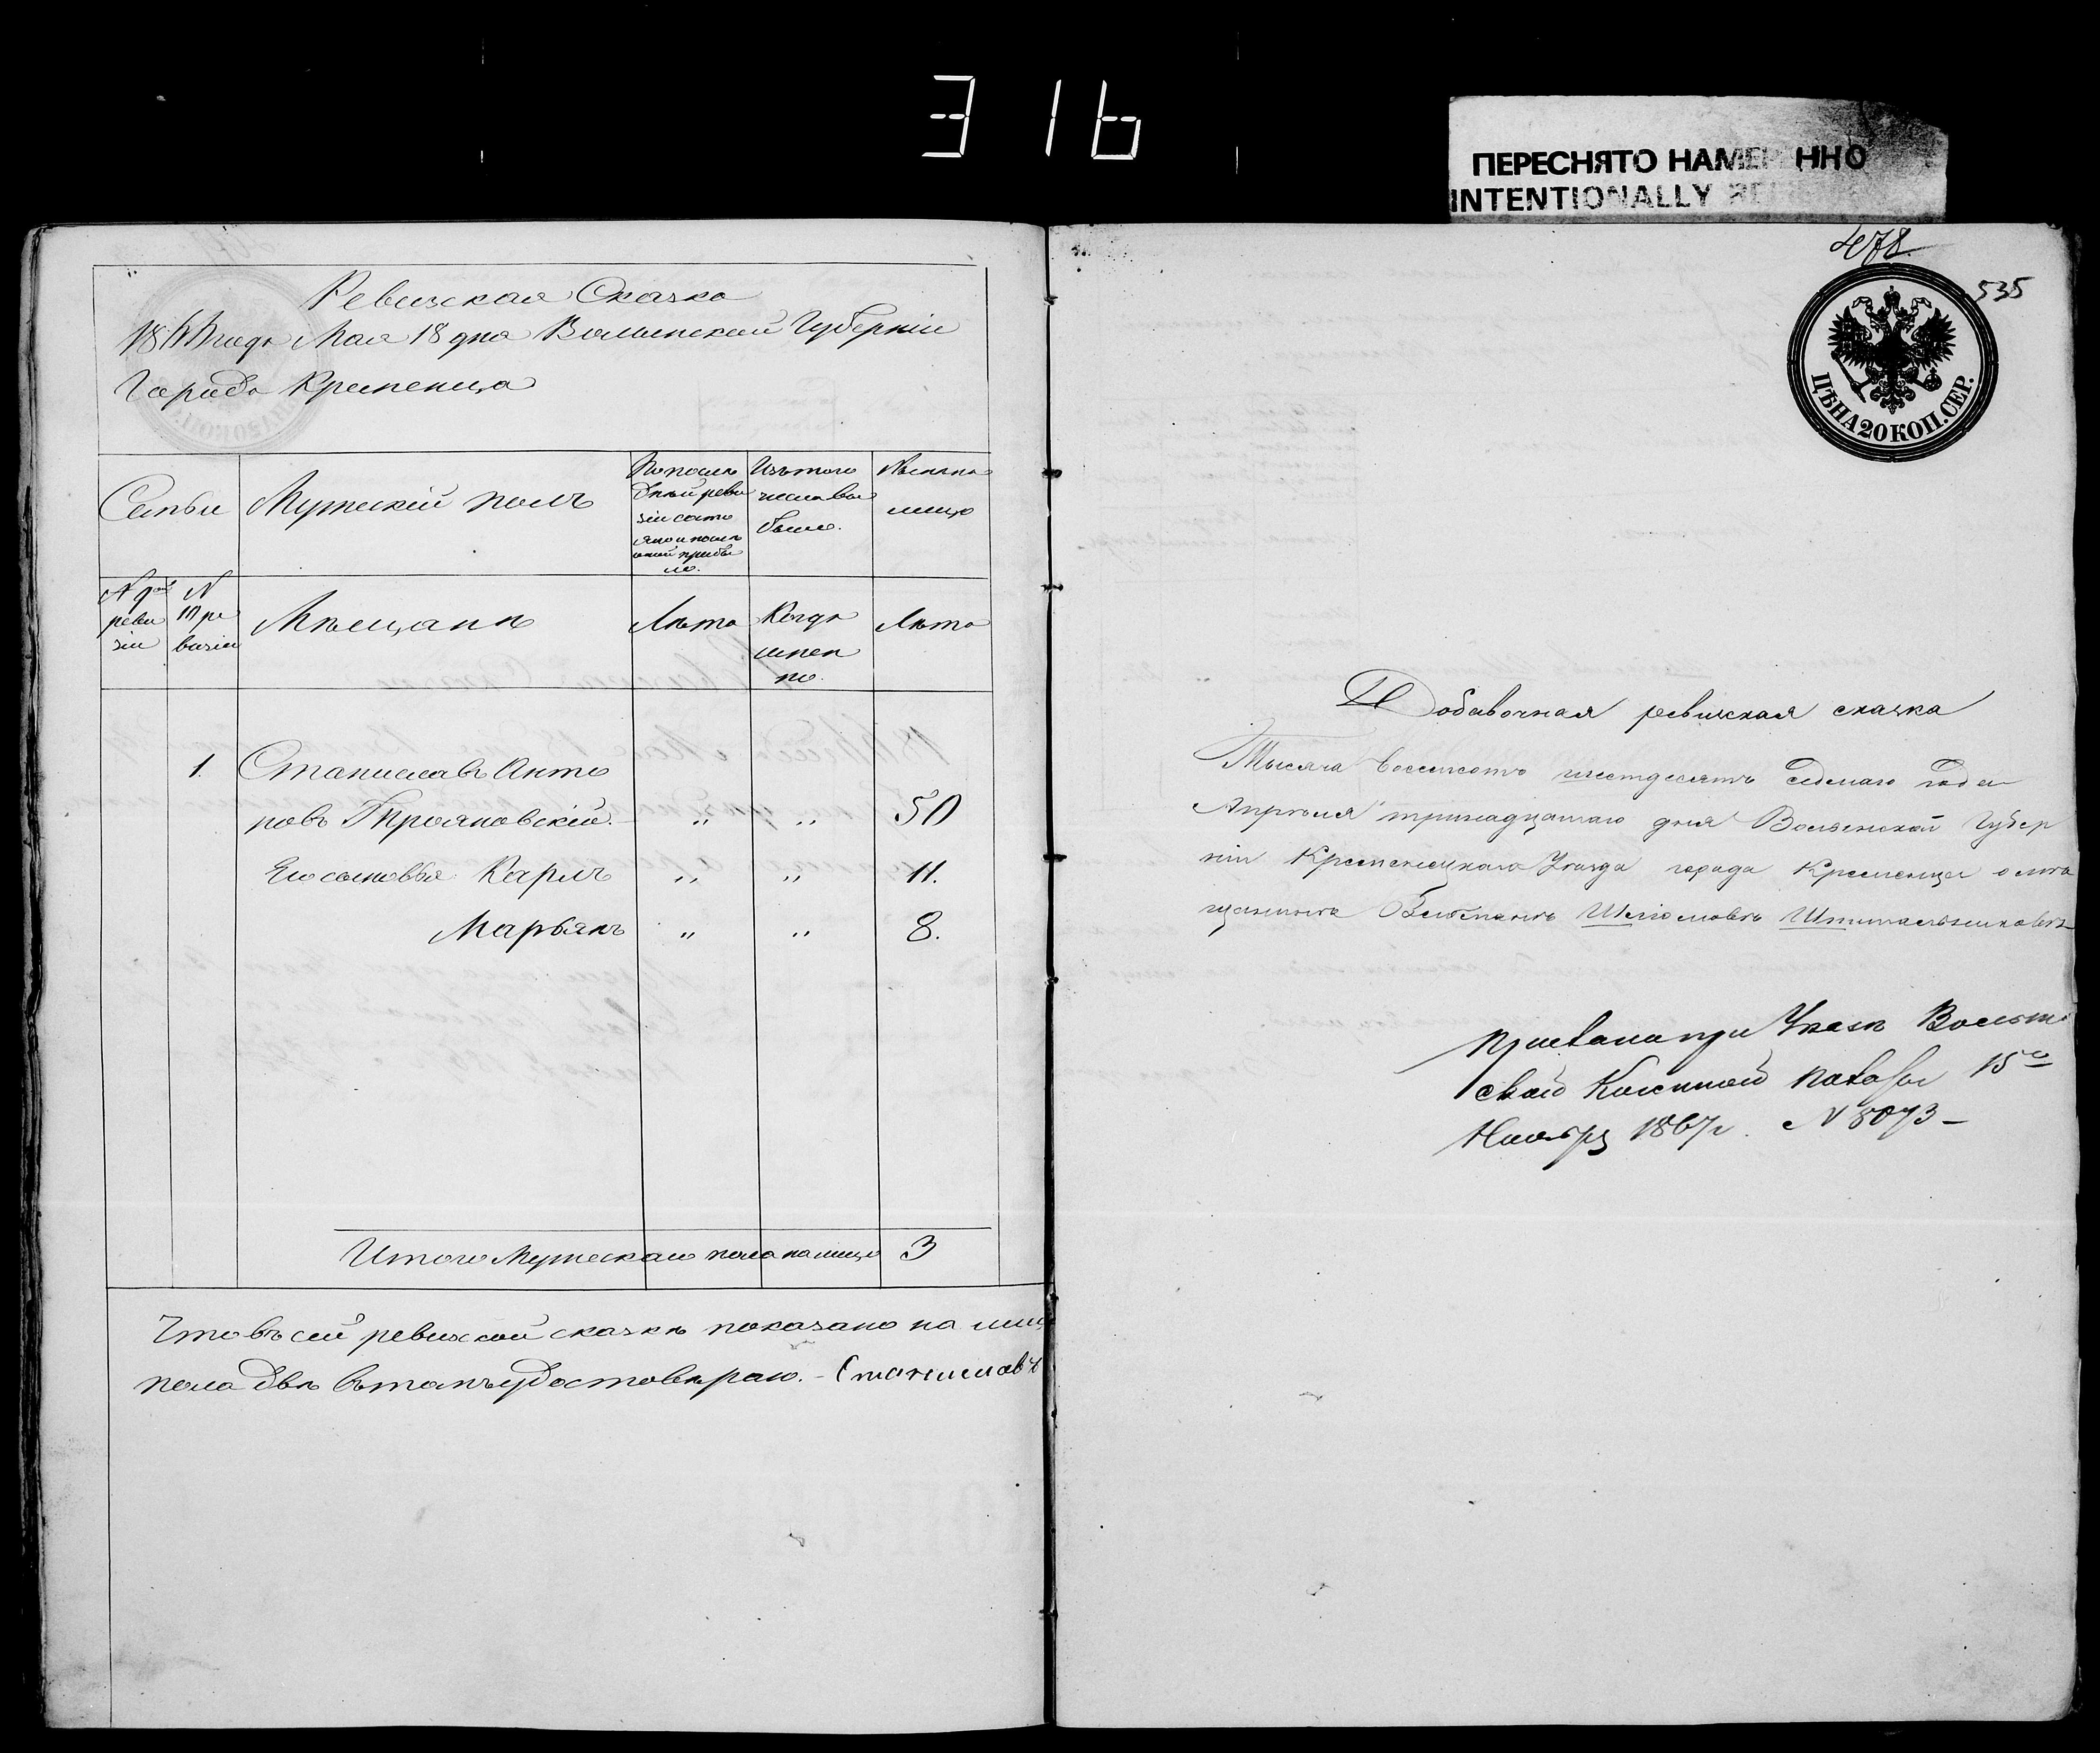 316
ПЕРЕСНЯТО НАМЕРЕННО
INTENTIONALLY
Ревизская Сказка
Мая 18 дня Волынской Губерніи
Города Кременца
Семьи
Мужескій полъ
По послѣ
дней реви
зіи состо
яло и послѣ
оной прибы
ло.
Изъ того
числа вы
было.
Нынѣ на
лицо
№
реви
зіи
№
10 ре
визіи
Мѣщанѣ
Лѣта
Когда
имен
но.
Лѣта
1. Станиславъ Анто
новъ Трояновскій. " " 50
Его сыновья Карлъ " " 11.
Марьянъ " " 8.
Итого Мужескаго пола налицо 3
Что въ сей ревизской сказкѣ показано на лиц
пола двѣ въ томъ удостовѣряю. - Станиславъ
478
535
ЦѢНА 20 КОП. СЕР.
Добавочная ревизская сказка
Тысяча восемсотъ шестдесятъ седмаго года
Апрѣля тринадцатаго дня Волынской Губер
ніи Кременецкаго Уѣзда города Кременца о мѣ
щанинѣ Шліомовѣ
Прислана при Указѣ Волын
ской Казенной Палаты 15го
Ноября 1867 г. № 8073 -